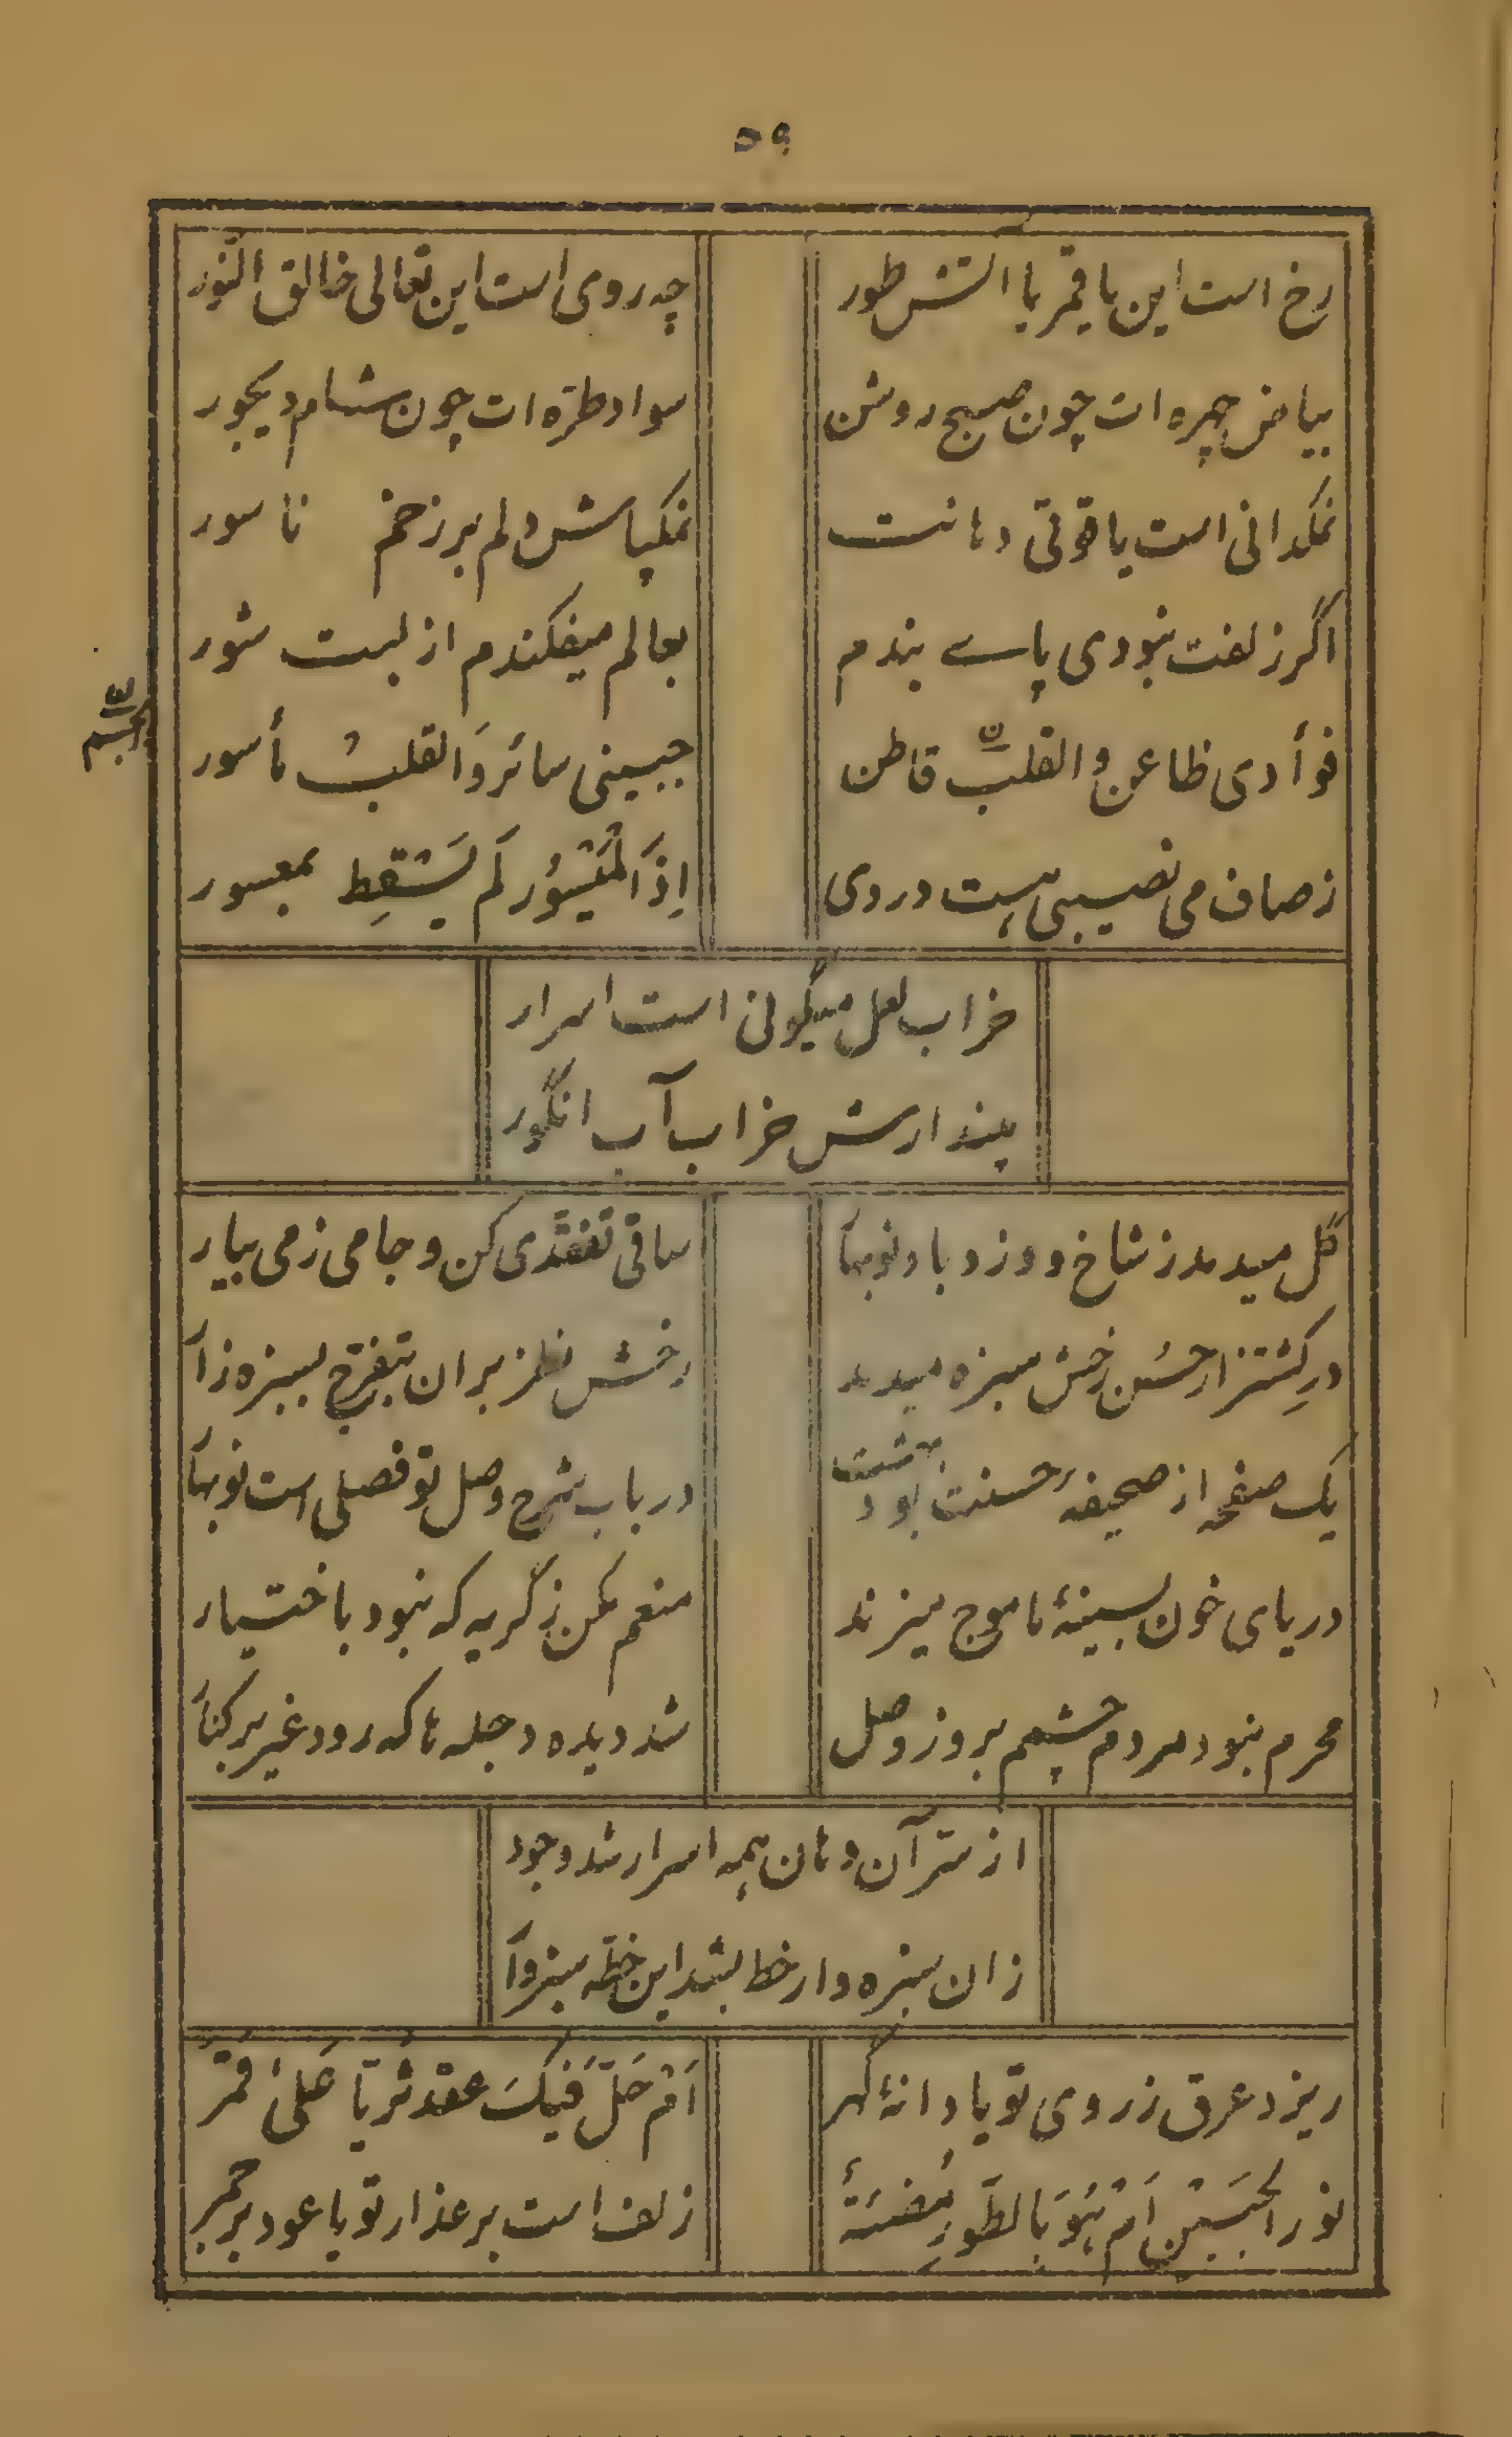 ۵۹
رخ است این یا قمر یا آتش طور
چه روی است این تعالی خالق النّور
بیاض چهره ات چون صبح روشن
سواد طرّه ات چون شام دیجور
نمکدانی است یاقوتی دهانت
نمکپاش دلم بر زخم ناسور
اگر زلفت نبودی پاے بندم
بعالم میفکندم از لبت شور
فوأدی ظاعن والقلب قاطن
جبینی سائر وَالقلبُ مأسور
زصاف می نصیبی هست دردی
اِذَا لْمَیْسُوُر لَم یَسْقِط بمعسور
خراب لعل میگونی است اسرار
مپندارش خراب آب انگور
گل میدمد ز شاخ و وزد باد نوبهآ
ساقی تفقّدی کن و جامی ز می بیار
در کِشتزار حُسن رخش سبزه میدمد
رخش نظر بران بتفرّج بسبزه زآ
یک صفحه از صحیفه حسنت بود بهشت
در باب شرح وصل تو فصلی است نوبهآ
دریای خون بسینهٔ ما موج میزند
منعم مکن ز گریه که نبود باختیار
محرم نبود مردم چشمم بروز وصل
شد دیده دجله ها که رود غیر برکنآ
از سّر آن دهان همه اسرار شد وجود
زان سبزه وار خط بشد این خطّه سبزوآ
ریزد عرق ز روی تو یا دانهٔ گهر
اَمْ حَلَّ فَیکَ عقد ثُریّا عَلیٰ قَمَرْ
نور الجَبیْنِ اَمْ هُوَ بالطّورِ مُضیَئَة
زلف است بر عذار تو یا عود بر جمر